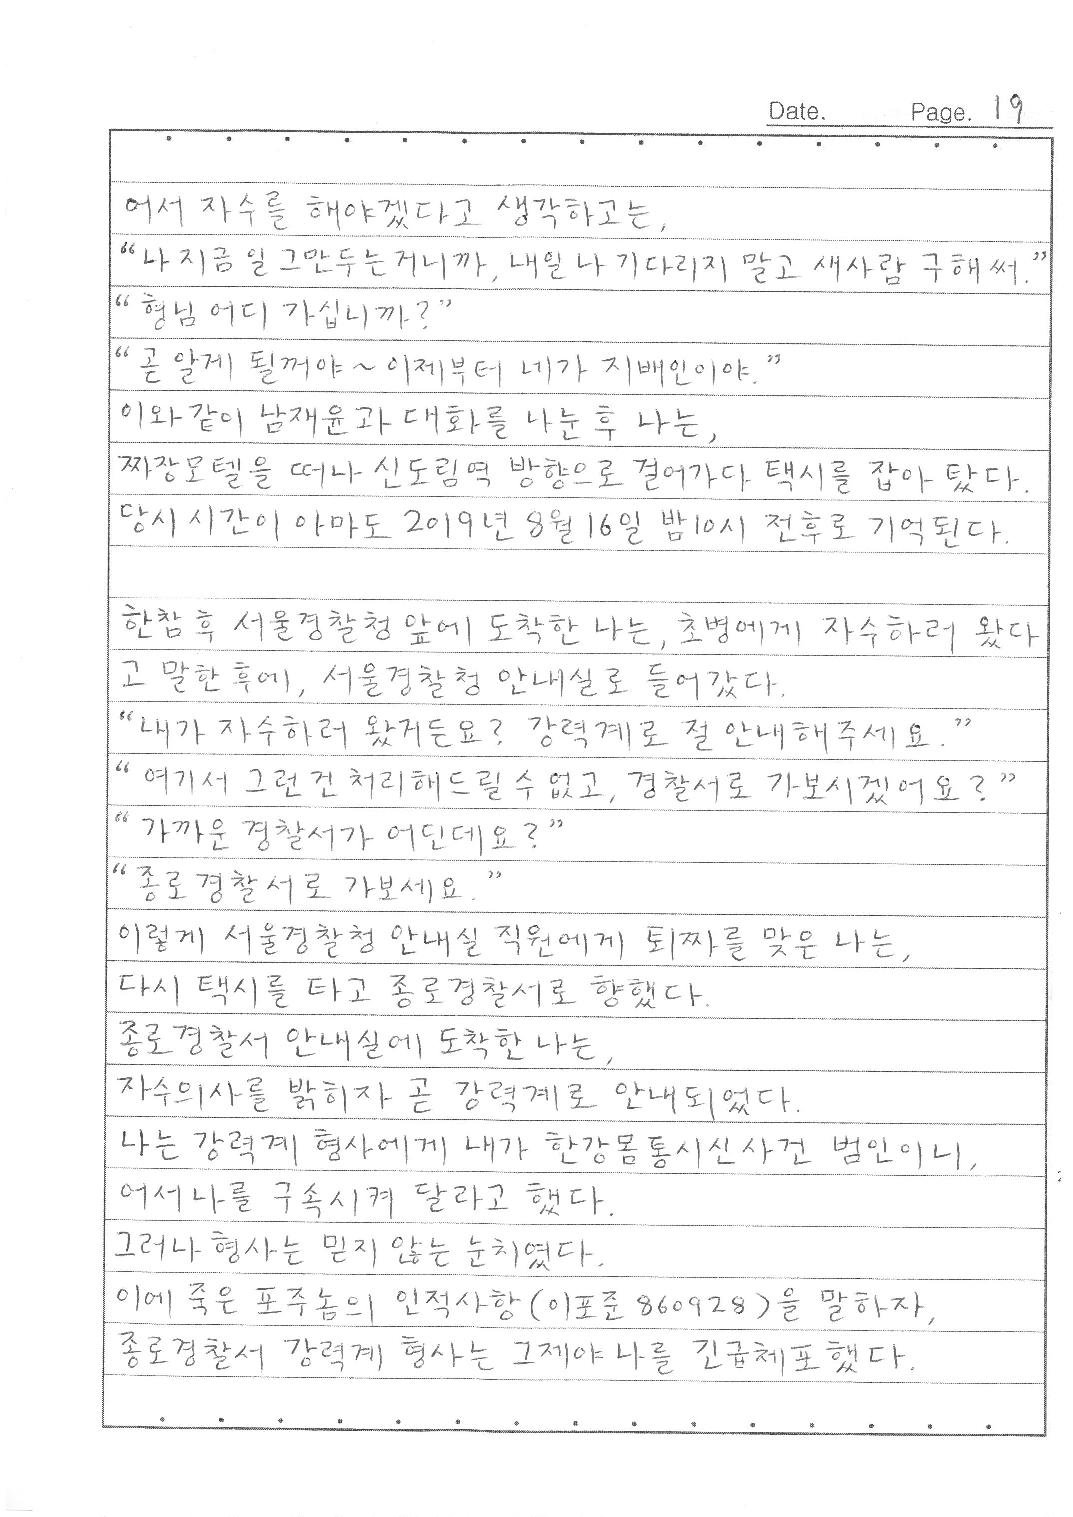 Date. Page. 19
어서 자수를 해야겠다고 생각하고는,
“나 지금 일 그만두는거니까, 내일 나 기다리지 말고 새사람 구해써.”
“형님 어디 가십니까?”
“곧 알게 될꺼야~ 이제부터 네가 지배인이야.”
이와같이 남재윤과 대화를 나눈 후 나는,
짜장모텔을 떠나 신도림역 방향으로 걸어가다 택시를 잡아 탔다.
당시 시간이 아마도 2019년 8월 16일 밤10시 전후로 기억된다.
한참 후 서울경찰청 앞에 도착한 나는, 초병에게 자수하러 왔다
고 말한 후에, 서울경찰청 안내실로 들어갔다.
“내가 자수하러 왔거든요? 강력계로 절 안내해주세요.”
“여기서 그런건 처리해드릴 수 없고, 경찰서로 가보시겠어요?”
“가까운 경찰서가 어딘데요?”
“종로경찰서로 가보세요.”
이렇게 서울경찰청 안내실 직원에게 퇴짜를 맞은 나는,
다시 택시를 타고 종로경찰서로 향했다.
종로경찰서 안내실에 도착한 나는,
자수의사를 밝히자 곧 강력계로 안내되었다.
나는 강력계 형사에게 내가 한강몸통시신사건 범인이니,
어서 나를 구속시켜 달라고 했다.
그러나 형사는 믿지 않는 눈치였다.
이에 죽은 포주놈의 인적사항(이포준 860928)을 말하자,
종로경찰서 강력계 형사는 그제야 나를 긴급체포했다.